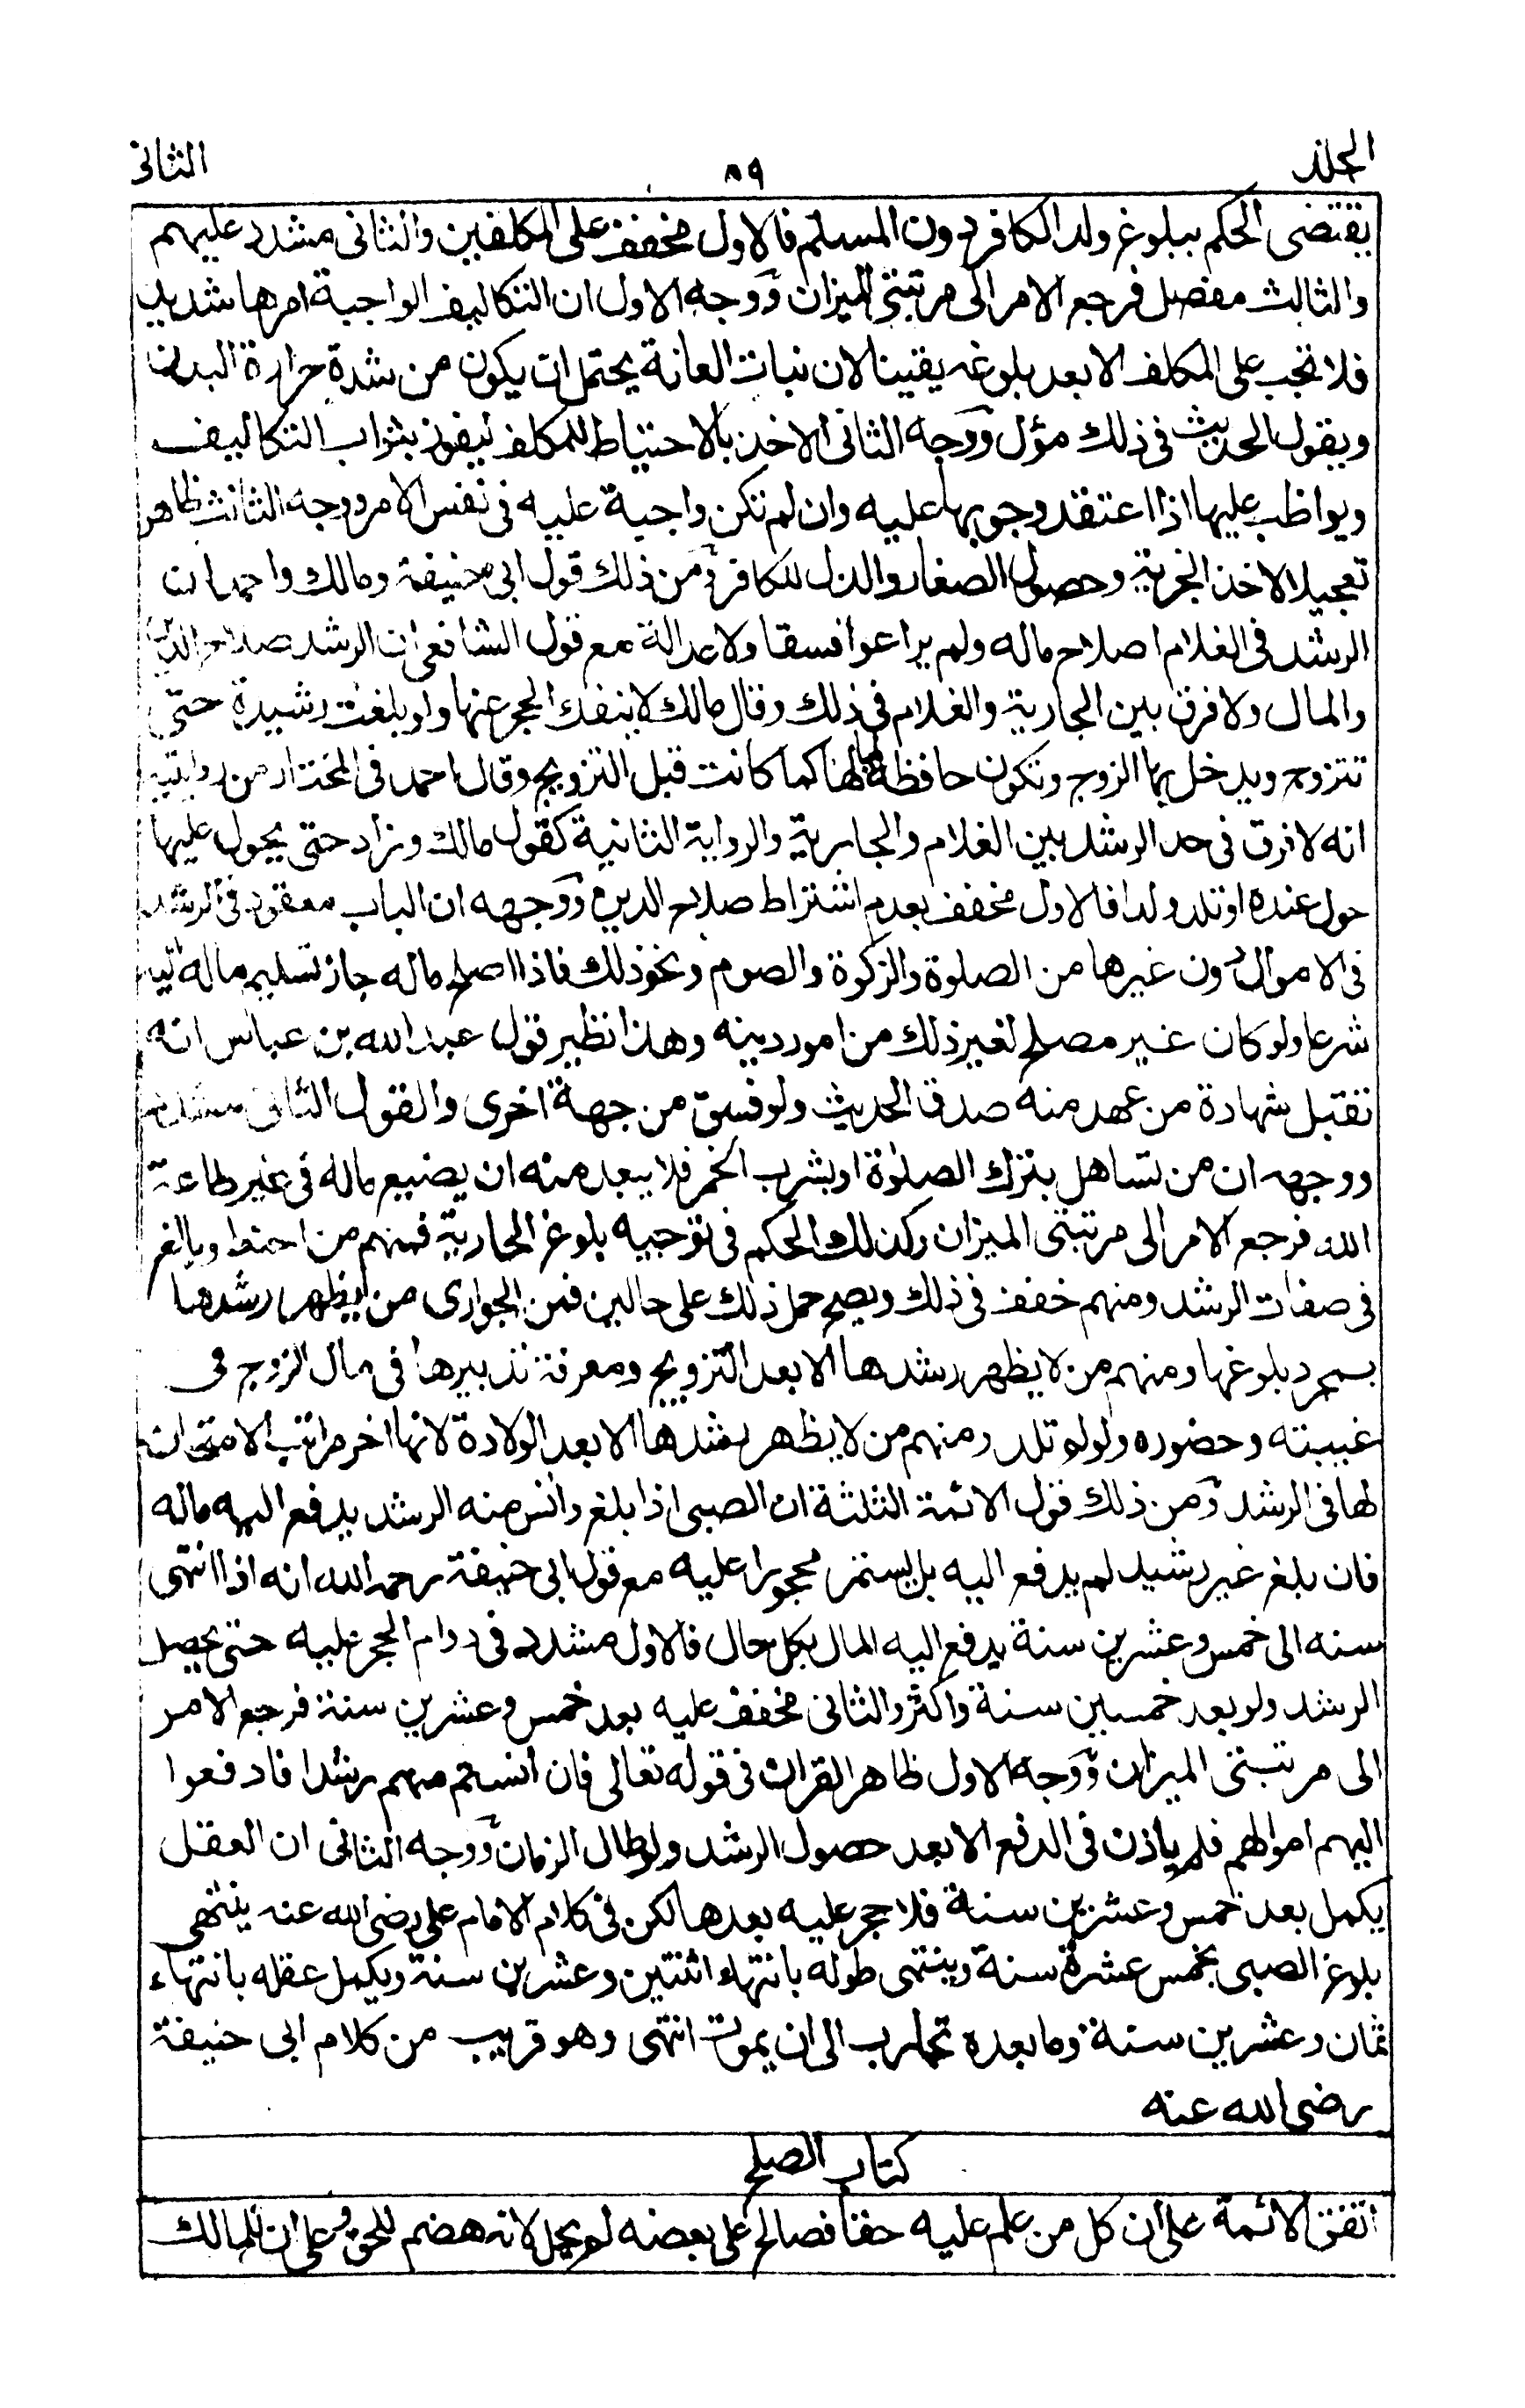 الجلد ٨٩ الثانى
يقتضى الحكم ببلوغ ولد الكافر دون المسلم فالاول مخفف على المكلفين والثانى مشدد عليهم
والثالث مفصل فرجع الامر الى مرتبتى الميزان ووجه الاول ان التكاليف الواجبة امرها شديد
فلا تجب على المكلف الا بعد بلوغه يقينا لان نبات العانة يحتمل ان يكون من شدة حرارة البدن
ويقول الحديث فى ذلك مؤل ووجه الثانى الاخذ بالاحتياط للمكلف ليفوز بثواب التكاليف
ويواظب عليها اذا اعتقد وجوبها عليه وان لم تكن واجبة عليه فى نفس الامر ووجه الثالث ظاهر
تعجيلا لاخذ الجزية وحصول الصغار والذل للكافر ومن ذلك قول ابى حنيفة ومالك واحمد ان
الرشد فى الغلام اصلاح ماله ولم يراعوا فسقا ولا عدالة مع قول الشافعى ان الرشد صلاح الدين
والمال ولا فرق بين الجارية والغلام فى ذلك وقال مالك لا ينفك الحجر عنها ولو بلغت رشيدة حتى
تتزوج ويدخل بها الزوج وتكون حافظة لمالها كما كانت قبل التزويج وقال احمد فى المختار من روايتيه
انه لا فرق فى حد الرشد بين الغلام والجارية والرواية الثانية كقول مالك وزاد حتى يحول عليها
حول عنده او تلد ولدا فالاول مخفف بعدم اشتراط صلاح الدين ووجهه ان الباب معقود فى الرشد
فى الاموال دون غيرها من الصلوة والزكوة والصوم ونحو ذلك فاذا اصلح ماله جاز تسليم ماله اليه
شرعا ولو كان غير مصلح لغير ذلك من امور دينه وهذا نظير قول عبد الله بن عباس انه
تقبل شهادة من عهد منه صدق الحديث ولو فسق من جهة اخرى والقول الثانى مشدد
ووجهه ان من تساهل بترك الصلوة او بشرب الخمر فلا يبعد منه ان يضيع ماله فى غير طاعة
الله فرجع الامر الى مرتبتى الميزان وكذلك الحكم فى توجيه بلوغ الجارية فمنهم من احتط وبالغ
فى صفات الرشد ومنهم خفف فى ذلك ويصح حمل ذلك على حالين فمن الجوارى من يظهر رشدها
بمجرد بلوغها ومنهم من لا يظهر رشدها الا بعد التزويج ومعرفة تدبيرها فى مال الزوج فى
غيبته وحضوره ولو لم تلد ومنهم من لا يظهر رشدها الا بعد الولادة لانها اخر مراتب الامتحان
لها فى الرشد ومن ذلك قول الائمة الثلثة ان الصبى اذا بلغ وانس منه الرشد يدفع اليه ماله
فان بلغ غير رشيد لم يدفع اليه بل يستمر محجورا عليه مع قول ابى حنيفة رحمه الله انه اذا انتهى
سنه الى خمس وعشرين سنة يدفع اليه المال بكل حال فالاول مشدد فى دوام الحجر عليه حتى يحصل
الرشد ولو بعد خمسين سنة واكثر والثانى مخفف عليه بعد خمس وعشرين سنة فرجع الامر
الى مرتبتى الميزان ووجه الاول ظاهر القران فى قوله تعالى فان انستم منهم رشدا فادفعوا
اليهم اموالهم فلم ياذن فى الدفع الا بعد حصول الرشد ولو طال الزمان ووجه الثانى ان العقل
يكمل بعد خمس وعشرين سنة فلا حجر عليه بعدها لكن فى كلام الامام على رضى الله عنه ينتهى
بلوغ الصبى بخمس عشرة سنة وينتهى طوله بانتهاء اثنتين وعشرين سنة ويكمل عقله بانتهاء
ثمان وعشرين سنة وما بعده تجارب الى ان يموت انتهى وهو قريب من كلام ابى حنيفة
رضى الله عنه
كتاب الصلح
اتفق الائمة على ان كل من علم عليه حقا فصالح على بعضه لم يحل لانه هضم للحق وعلى ان للمالك